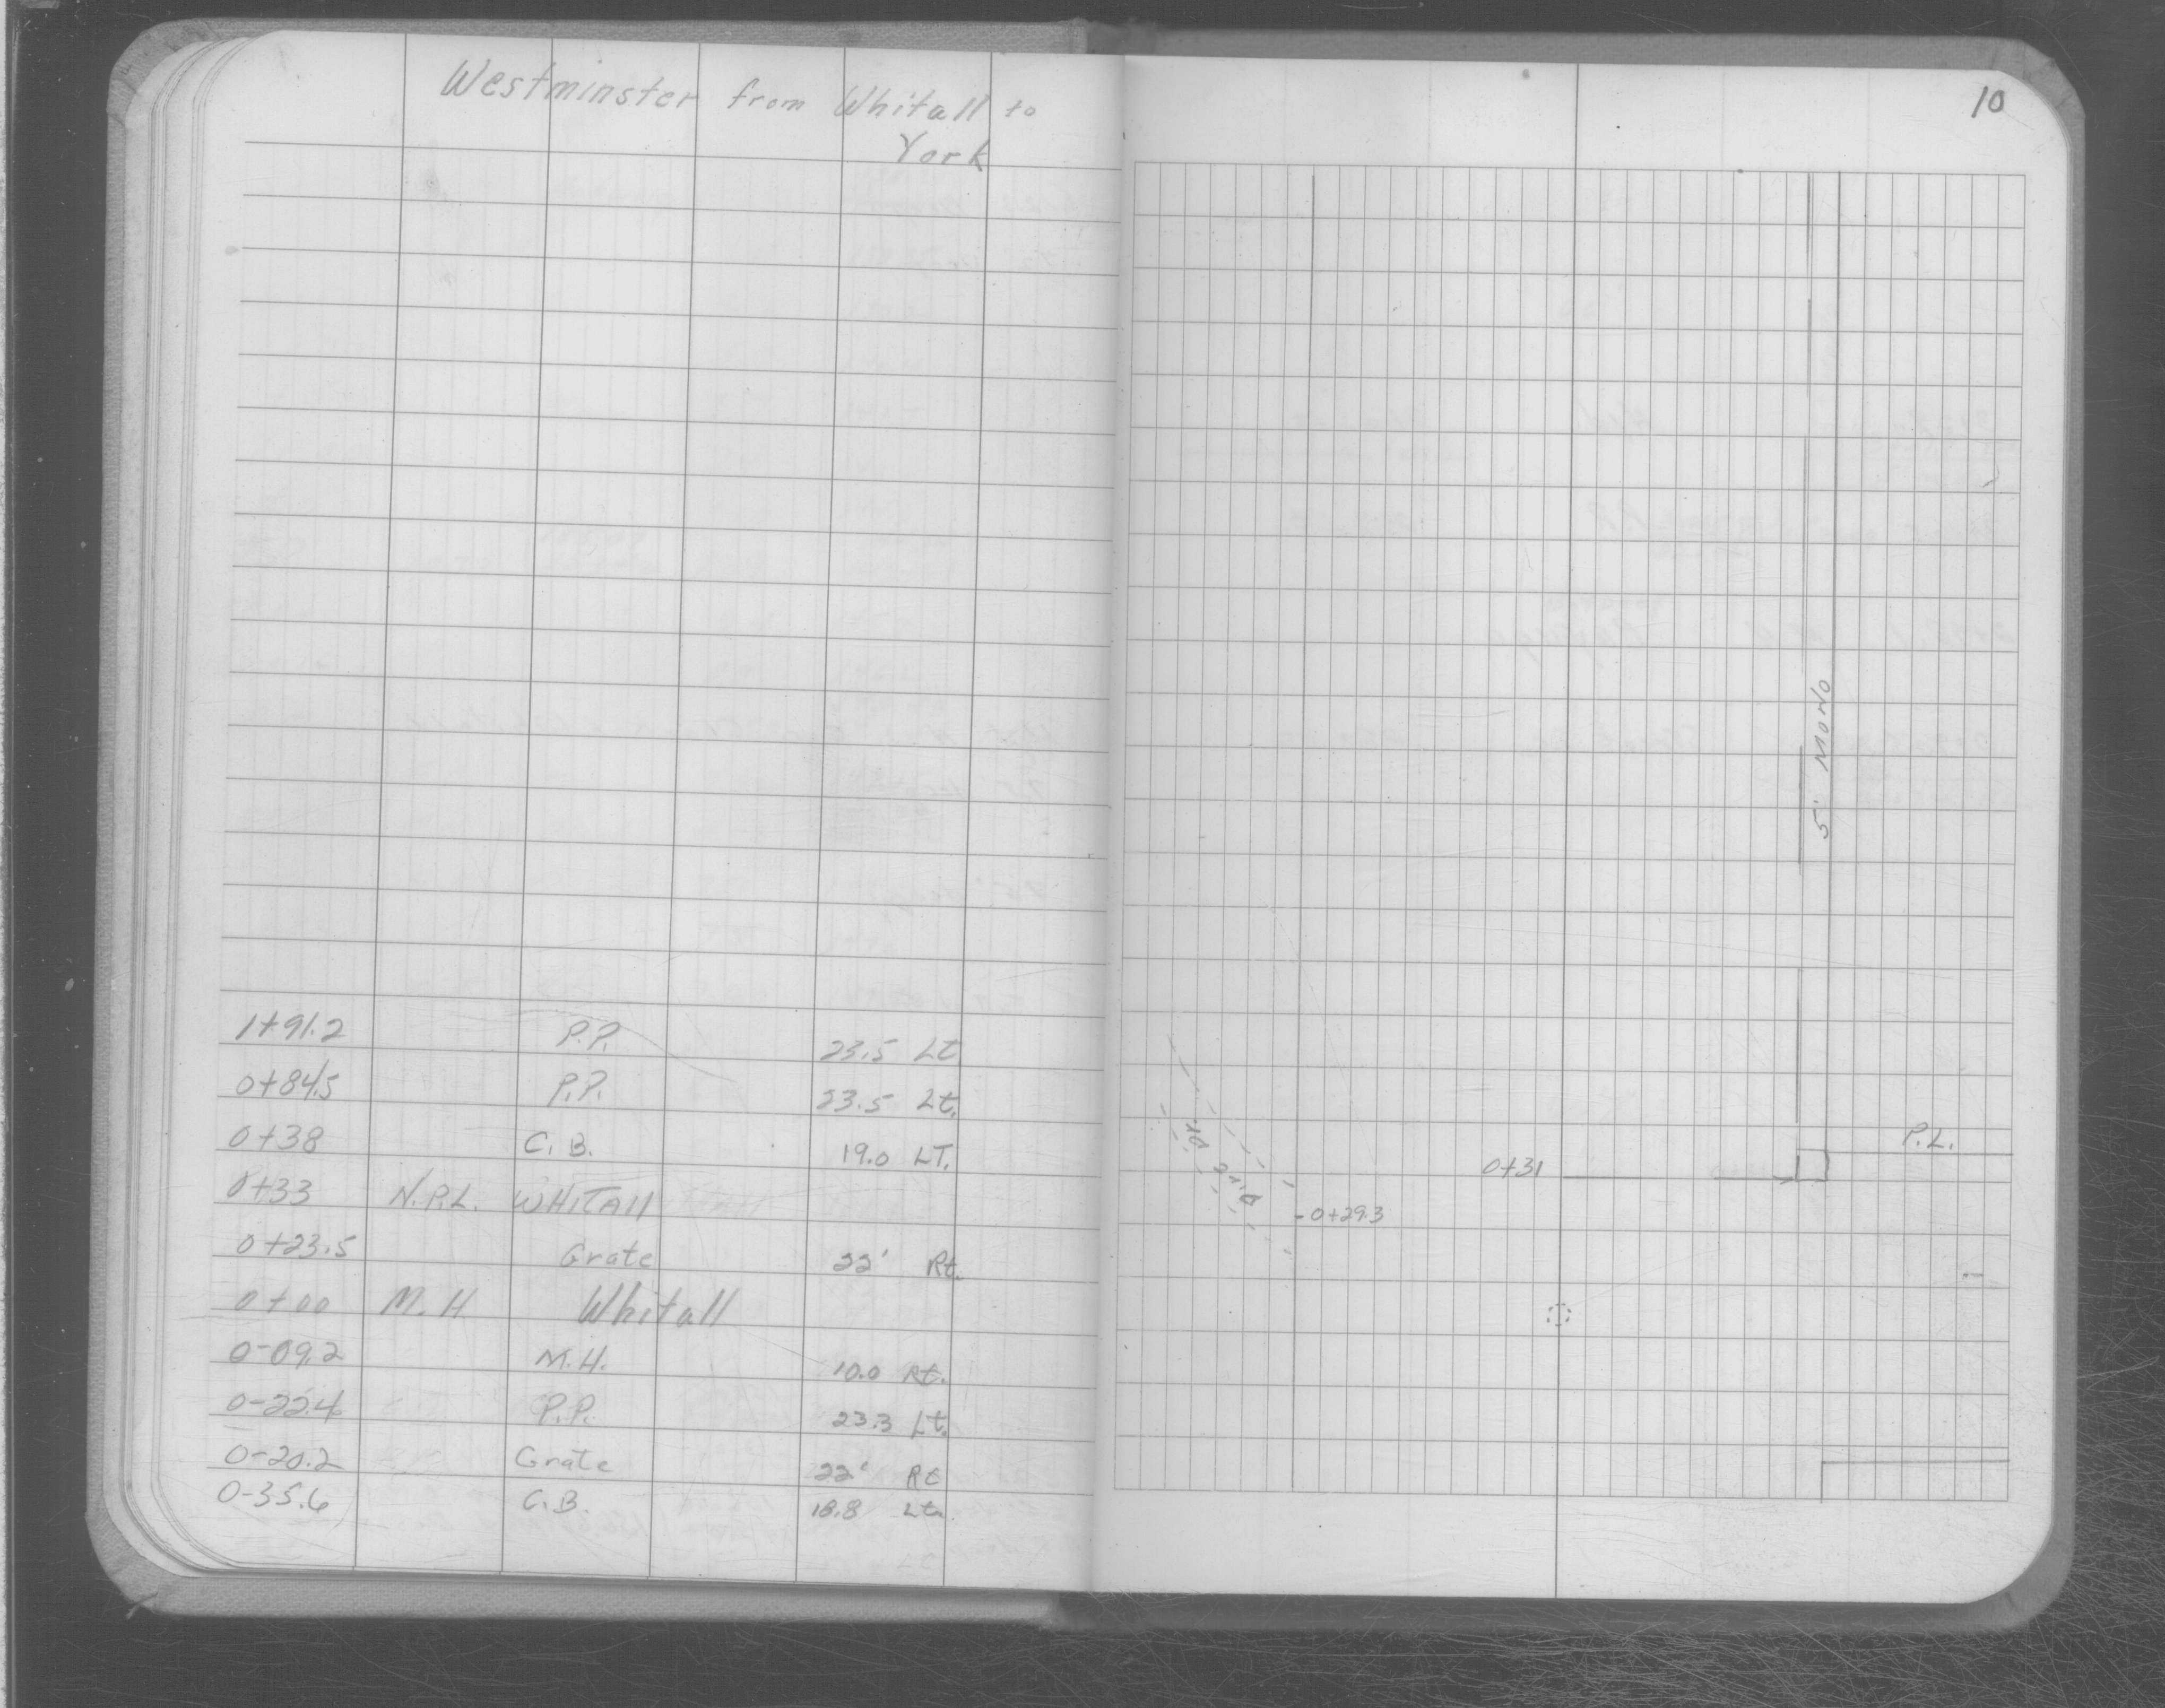 Westminster from Whitall to
York
10
1+91.2 P.P. 23.5 Lt
0+84.5 P.P. 23.5 Lt.
0+38 C.B. 19.0 LT.
0+33 N.P.L. WHITAll
0+23.5 Grate 22' Rt.
0+00 M.H. Whitall
0-09.2 M.H. 10.0 Rt.
0-22.4 P.P. 23.3 Lt.
0-20.2 Grate 22' Rt
0-35.6 C.B. 18.8 Lt.
5' MONO
P.L.
0+31
Dirt Dr.
0+29.3